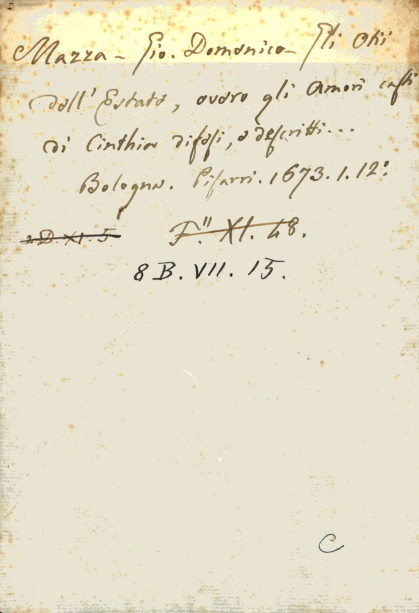 Mazza - Gio. Domenico - Gli Otii
dell' Estate, overo gli Amori casti
di Cinthia difesi, e descritti...
Bologna. Pisarri. 1673. 1. 12°.
2 D. XI. 5 F." XI. 48.
8 B. VII. 15.
C